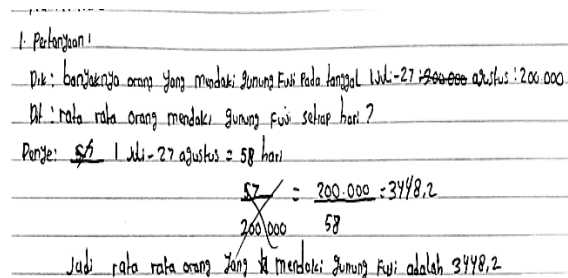 1. Pertanyaan!
Dik: banyaknya orang yang mendaki gunung Fuji pada tanggal 1 Juli-27 agustus: 200.000
Dit: rata rata orang mendaki gunung Fuji setiap hari?
Penye: 1 Juli-27 agustus = 58 hari
57 = 200.000 = 3448,2
200.000 58
Jadi rata rata orang yang mendaki gunung Fuji adalah 3448,2